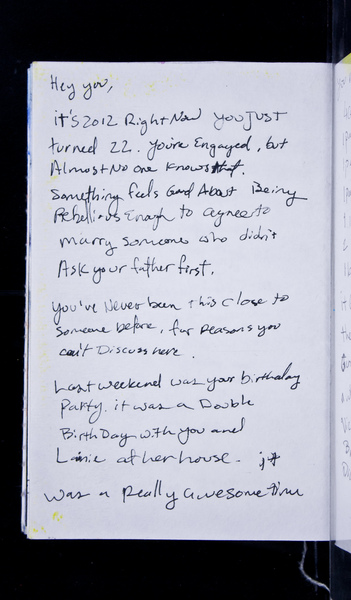 Hey you,
it's 2012 Right Now you just
turned 22. you're Engaged, but
Almost No one knows that.
Something feels Good About Being
Rebellious Enough to agree to
marry someone who didn't
Ask your father first.
you've Never been this close to
someone before, for reasons you
can't Discuss here.
Last weekend was your birthday
Party. it was a Double
BirthDay with you and
at her house. it
was a Really awesome time